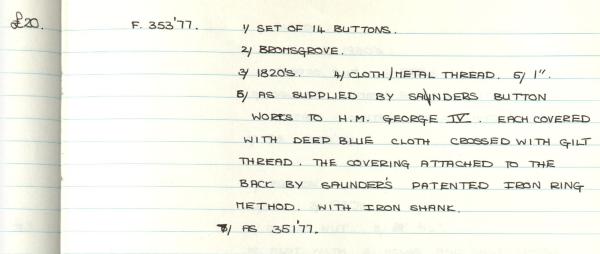 £20. F. 353'77. 1/ SET OF 14 BUTTONS.
2/ BROMSGROVE.
3/ 1820'S. 4/ CLOTH/METAL THREAD. 5/ 1".
6/ AS SUPPLIED BY SAUNDERS BUTTON
WORKS TO H.M. GEORGE IV. EACH COVERED
WITH DEEP BLUE CLOTH CROSSED WITH GILT
THREAD. THE COVERING ATTACHED TO THE
BACK BY SAUNDER'S PATENTED IRON RING
METHOD. WITH IRON SHANK.
7/ AS 351'77.